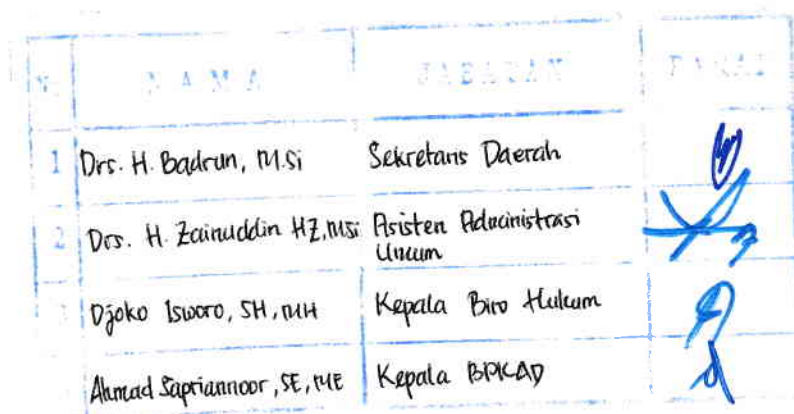 NAMA JABATAN PARAF
1 Drs. H. Badrun, M.Si Sekretaris Daerah
2 Drs. H. Zainuddin HZ, MSi Asisten Administrasi
Umum
Djoko Isworo, SH, MH Kepala Biro Hukum
Ahmad Sapriannoor, SE, ME Kepala BPKAD